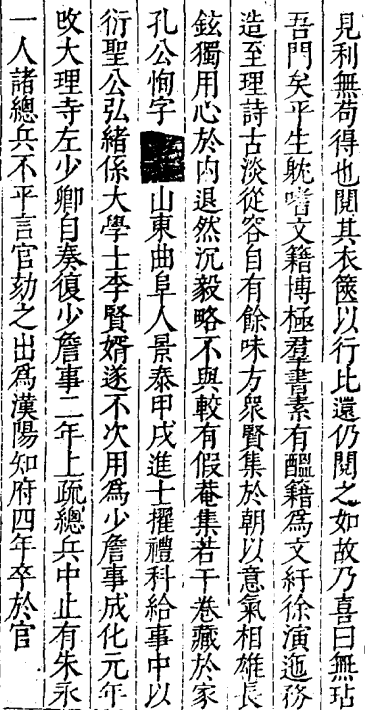 見利無苟得也閱其衣篋以行比還仍閱之如故乃喜曰無玷
吾門矣平生躭嗜文籍博極羣書素有醞籍爲文紆徐演迤務
造至理詩古淡從容自有餘味方衆賢集於朝以意氣相雄長
鉉獨用心於内退然沉毅略不與較有假菴集若干卷藏於家
孔公恂字山東曲阜人景泰甲戌進士擢禮科給事中以
衍聖公弘緒係大學士李賢婿遂不次用爲少詹事成化元年
攺大理寺左少卿自奏復少詹事二年上疏總兵中止有朱永
一人諸總兵不平言官劾之出爲漢陽知府四年卒於官